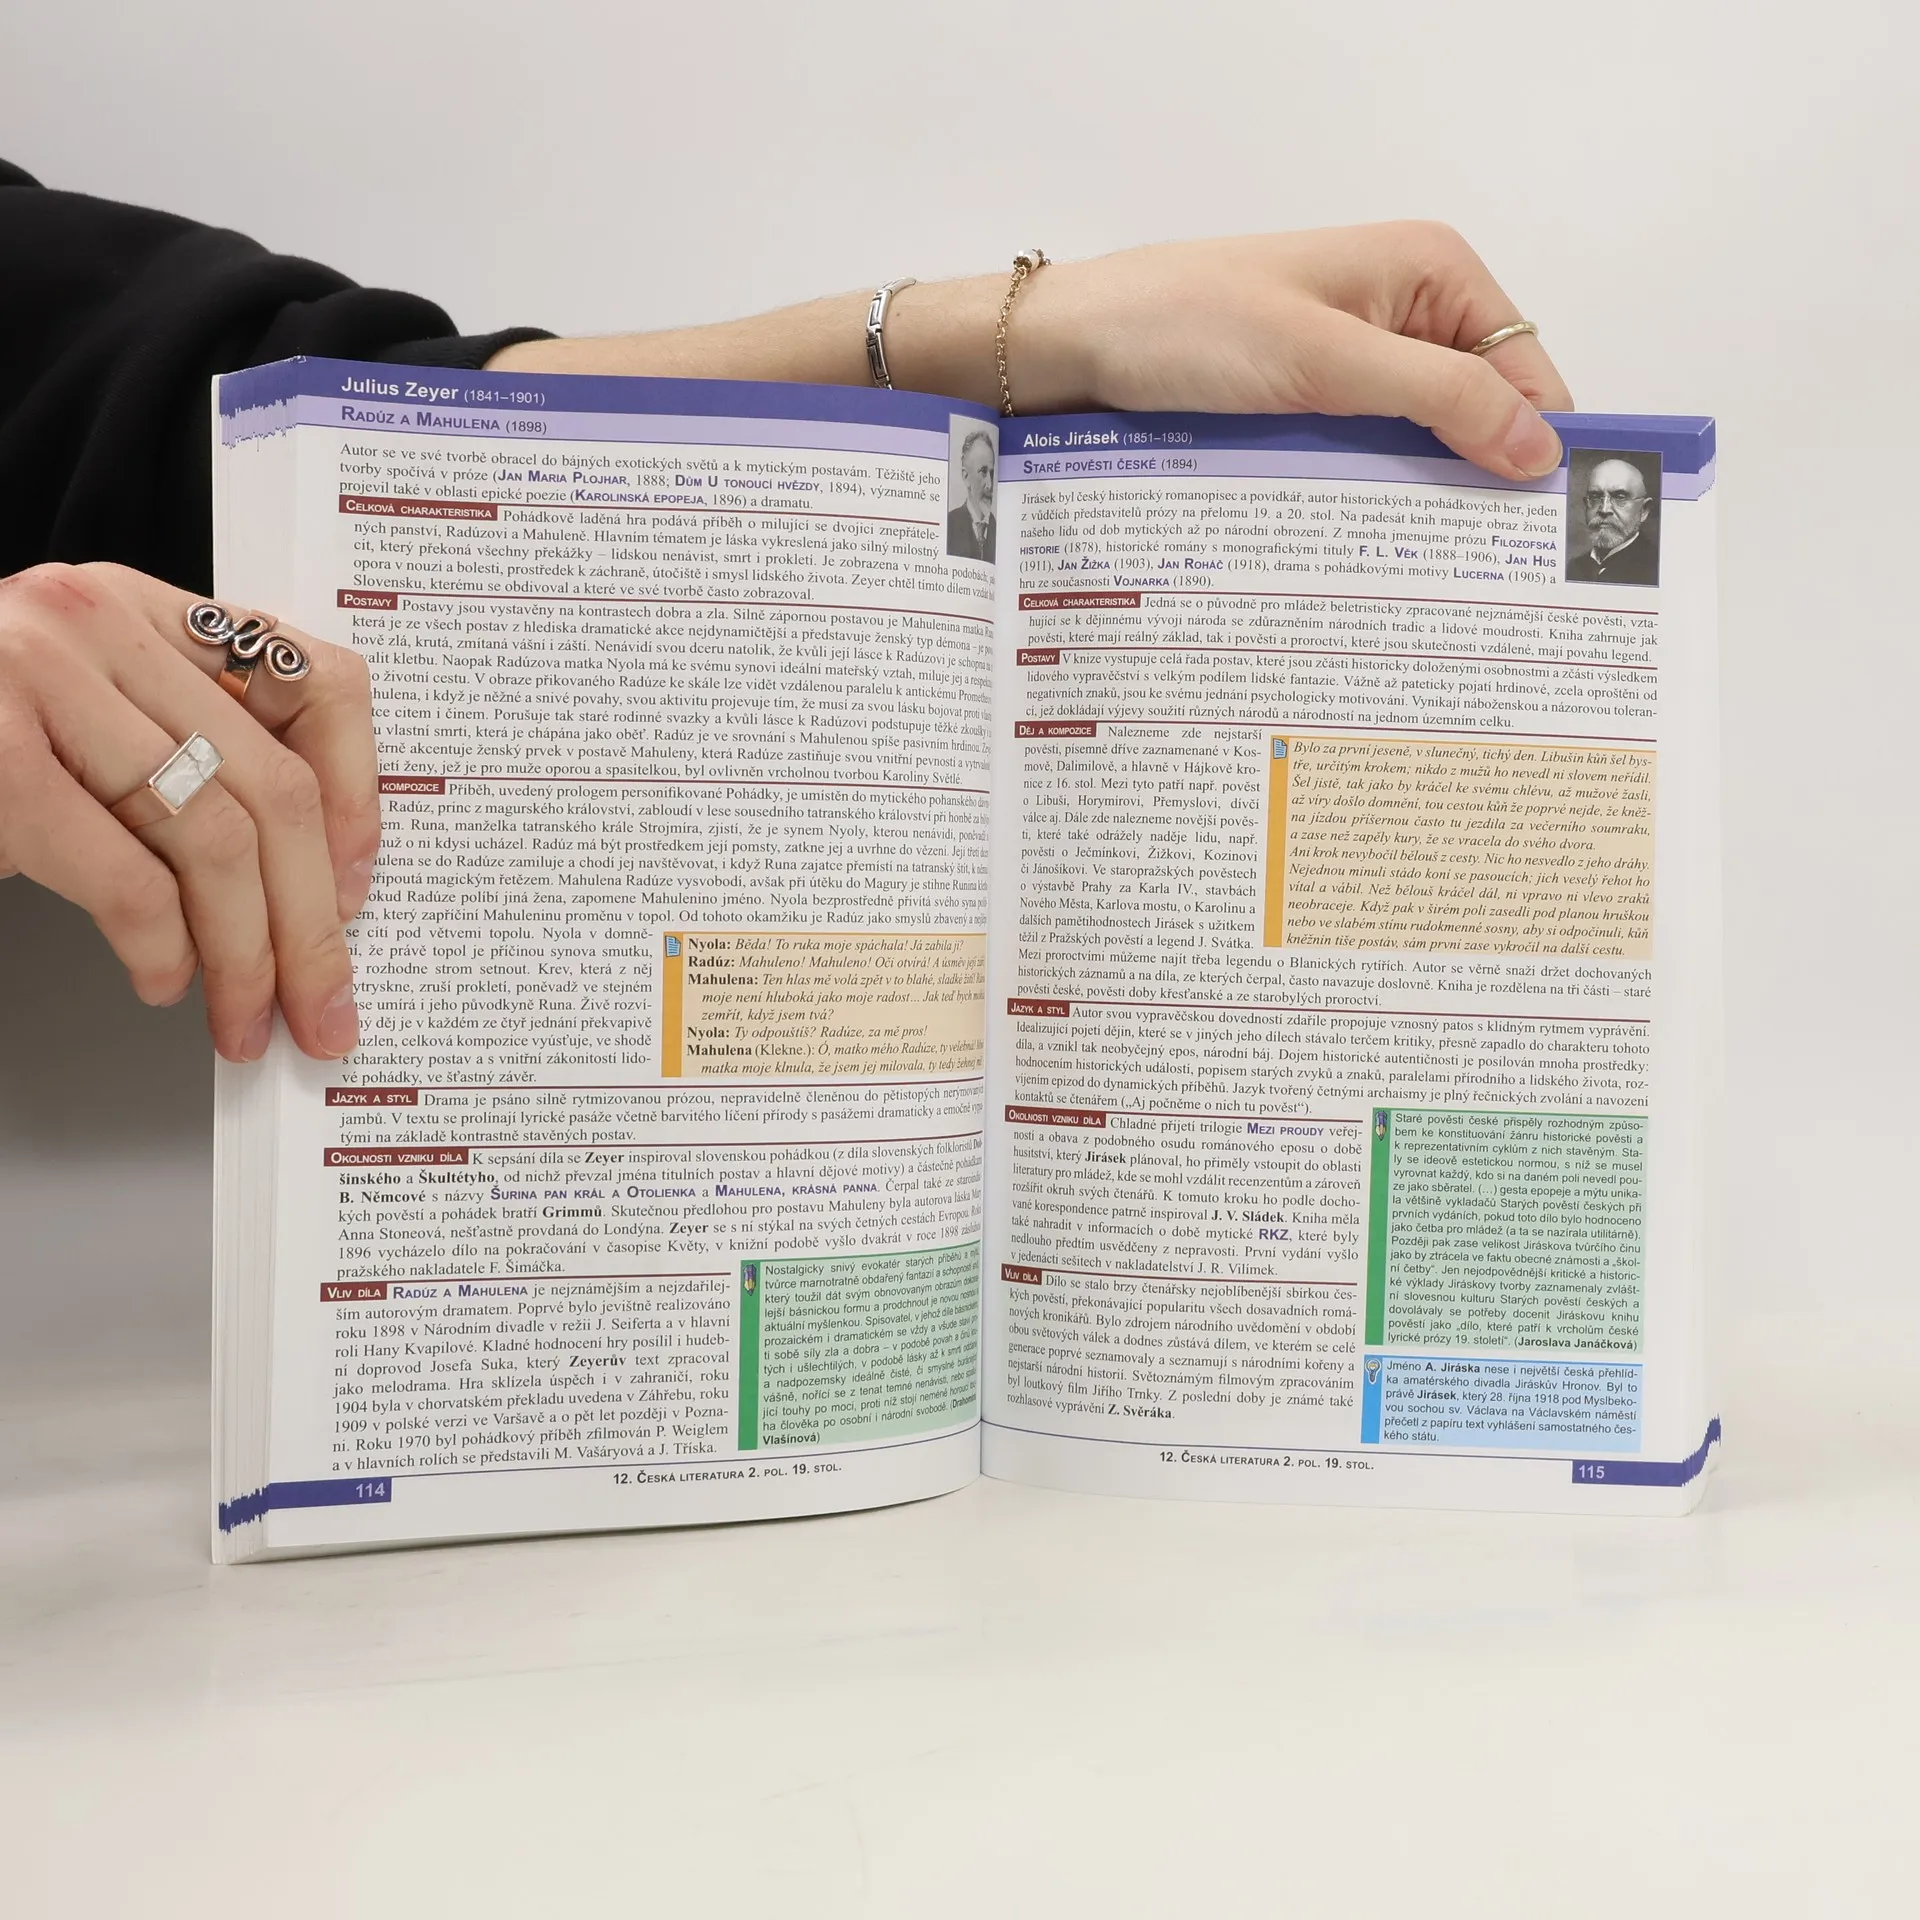 Julius Zeyer (1841–1901)
RADÚZ A MAHULENA (1898)
Autor se ve své tvorbě obracel do bájných exotických světů a k mytickým postavám. Těžiště jeho
tvorby spočívá v próze (JAN MARIA PLOJHAR, 1888; DŮM U TONOUCÍ HVĚZDY, 1894), významně se
projevil také v oblasti epické poezie (KAROLINSKÁ EPOPEJA, 1896) a dramatu.
CELKOVÁ CHARAKTERISTIKA Pohádkově laděná hra podává příběh o milující se dvojici znepřátele-
ných panství, Radúzovi a Mahuleně. Hlavním tématem je láska vykreslená jako silný milostný
cit, který překoná všechny překážky – lidskou nenávist, smrt i prokletí. Je zobrazena v mnoha podobách,
opora v nouzi a bolesti, prostředek k záchraně, útočiště i smysl lidského života. Zeyer chtěl tímto dílem vzdát
Slovensku, kterému se obdivoval a které ve své tvorbě často zobrazoval.
POSTAVY Postavy jsou vystavěny na kontrastech dobra a zla. Silně zápornou postavou je Mahulenina matka
která je ze všech postav z hlediska dramatické akce nejdynamičtější a představuje ženský typ démona – je
hově zlá, krutá, zmítaná vášní i záští. Nenávidí svou dceru natolik, že kvůli její lásce k Radúzovi je schopna
valit kletbu. Naopak Radúzova matka Nyola má ke svému synovi ideální mateřský vztah, miluje jej a
o životní cestu. V obraze přikovaného Radúze ke skále lze vidět vzdálenou paralelu k antickému
hulena, i když je něžné a snivé povahy, svou aktivitu projevuje tím, že musí za svou lásku bojovat proti
tce citem i činem. Porušuje tak staré rodinné svazky a kvůli lásce k Radúzovi podstupuje těžké zkoušky
u vlastní smrti, která je chápána jako oběť. Radúz je ve srovnání s Mahulenou spíše pasivním hrdinou.
ěrně akcentuje ženský prvek v postavě Mahuleny, která Radúze zastiňuje svou vnitřní pevností a
jetí ženy, jež je pro muže oporou a spasitelkou, byl ovlivněn vrcholnou tvorbou Karoliny Světlé.
KOMPOZICE Příběh, uvedený prologem personifikované Pohádky, je umístěn do mytického pohanského
Radúz, princ z magurského království, zabloudí v lese sousedního tatranského království při honbě za
em. Runa, manželka tatranského krále Strojmíra, zjistí, že je synem Nyoly, kterou nenávidí,
muž o ni kdysi ucházel. Radúz má být prostředkem její pomsty, zatkne jej a uvrhne do vězení. Její třetí
ulena se do Radúze zamiluje a chodí jej navštěvovat, i když Runa zajatce přemístí na tatranský štít, k
připoutá magickým řetězem. Mahulena Radúze vysvobodí, avšak při útěku do Magury je stihne Runina
okud Radúze políbí jiná žena, zapomene Mahulenino jméno. Nyola bezprostředně přivítá svého syna
em, který zapříčiní Mahuleninu proměnu v topol. Od tohoto okamžiku je Radúz jako smyslů zbavený a
se cítí pod větvemi topolu. Nyola v domně-
ní, že právě topol je příčinou synova smutku,
e rozhodne strom setnout. Krev, která z něj
ytryskne, zruší prokletí, poněvadž ve stejném
se umírá i jeho původkyně Runa. Živě rozví-
ný děj je v každém ze čtyř jednání překvapivě
uzlen, celková kompozice vyúsťuje, ve shodě
s charaktery postav a s vnitřní zákonitostí lido-
vé pohádky, ve šťastný závěr.
Nyola: Běda! To ruka moje spáchala! Já zabila ji?
Radúz: Mahuleno! Mahuleno! Oči otvírá! A úsměv její
Mahulena: Ten hlas mě volá zpět v to blahé, sladké žití!
moje není hluboká jako moje radost… Jak teď bych
zemřít, když jsem tvá?
Nyola: Ty odpouštíš? Radúze, za mě pros!
Mahulena (Klekne.): Ó, matko mého Radúze, ty velebná!
matka moje klnula, že jsem jej milovala, ty tedy žehnej
JAZYK A STYL Drama je psáno silně rytmizovanou prózou, nepravidelně členěnou do pětistopých nerýmovaných
jambů. V textu se prolínají lyrické pasáže včetně barvitého líčení přírody s pasážemi dramaticky a emočně vypja-
tými na základě kontrastně stavěných postav.
OKOLNOSTI VZNIKU DÍLA K sepsání díla se Zeyer inspiroval slovenskou pohádkou (z díla slovenských folkloristů Dob-
šinského a Škultétyho, od nichž převzal jména titulních postav a hlavní dějové motivy) a částečně pohádkami
B. Němcové s názvy ŠURINA PAN KRÁL A OTOLIENKA a MAHULENA, KRÁSNÁ PANNA. Čerpal také ze
kých pověstí a pohádek bratří Grimmů. Skutečnou předlohou pro postavu Mahuleny byla autorova láska
Anna Stoneová, nešťastně provdaná do Londýna. Zeyer se s ní stýkal na svých četných cestách Evropou. Roku
1896 vycházelo dílo na pokračování v časopise Květy, v knižní podobě vyšlo dvakrát v roce 1898 zásluhou
pražského nakladatele F. Šimáčka.
VLIV DÍLA RADÚZ A MAHULENA je nejznámějším a nejzdařilej-
ším autorovým dramatem. Poprvé bylo jevištně realizováno
roku 1898 v Národním divadle v režii J. Seiferta a v hlavní
roli Hany Kvapilové. Kladné hodnocení hry posílil i hudeb-
ní doprovod Josefa Suka, který Zeyerův text zpracoval
jako melodrama. Hra sklízela úspěch i v zahraničí, roku
1904 byla v chorvatském překladu uvedena v Záhřebu, roku
1909 v polské verzi ve Varšavě a o pět let později v Pozna-
ni. Roku 1970 byl pohádkový příběh zfilmován P. Weiglem
a v hlavních rolích se představili M. Vašáryová a J. Tříska.
Nostalgicky snivý evokatér starých příběhů a mýtů,
tvůrce marnotratně obdařený fantazií a schopností
který toužil dát svým obnovovaným obrazům
lejší básnickou formu a prodchnout je novou
aktuální myšlenkou. Spisovatel, v jehož díle básnickém,
prozaickém i dramatickém se vždy a všude
ti sobě síly zla a dobra – v podobě povah a činů
tých i ušlechtilých, v podobě lásky až k smrti
a nadpozemsky ideálně čisté, či smyslné
vášně, nořící se z tenat temné nenávisti, nebo
jící touhy po moci, proti níž stojí neméně
ha člověka po osobní i národní svobodě. (
Vlašínová)
114
12. ČESKÁ LITERATURA 2. POL. 19. STOL.
Alois Jirásek (1851–1930)
STARÉ POVĚSTI ČESKÉ (1894)
Jirásek byl český historický romanopisec a povídkář, autor historických a pohádkových her, jeden
z vůdčích představitelů prózy na přelomu 19. a 20. stol. Na padesát knih mapuje obraz života
našeho lidu od dob mytických až po národní obrození. Z mnoha jmenujme prózu FILOZOFSKÁ
HISTORIE (1878), historické romány s monografickými tituly F. L. VĚK (1888–1906), JAN HUS
(1911), JAN ŽIŽKA (1903), JAN ROHÁČ (1918), drama s pohádkovými motivy LUCERNA (1905) a
hru ze současnosti VOJNARKA (1890).
CELKOVÁ CHARAKTERISTIKA Jedná se o původně pro mládež beletristicky zpracované nejznámější české pověsti, vzta-
hující se k dějinnému vývoji národa se zdůrazněním národních tradic a lidové moudrosti. Kniha zahrnuje jak
pověsti, které mají reálný základ, tak i pověsti a proroctví, které jsou skutečnosti vzdálené, mají povahu legend.
POSTAVY V knize vystupuje celá řada postav, které jsou zčásti historicky doloženými osobnostmi a zčásti výsledkem
lidového vypravěčství s velkým podílem lidské fantazie. Vážně až pateticky pojatí hrdinové, zcela oproštěni od
negativních znaků, jsou ke svému jednání psychologicky motivováni. Vynikají náboženskou a názorovou toleran-
cí, jež dokládají výjevy soužití různých národů a národností na jednom územním celku.
DĚJ A KOMPOZICE Nalezneme zde nejstarší
pověsti, písemně dříve zaznamenané v Kos-
mově, Dalimilově, a hlavně v Hájkově kro-
nice z 16. stol. Mezi tyto patří např. pověst
o Libuši, Horymírovi, Přemyslovi, dívčí
válce aj. Dále zde nalezneme novější pověs-
ti, které také odrážely naděje lidu, např.
pověsti o Ječmínkovi, Žižkovi, Kozinovi
či Jánošíkovi. Ve staropražských pověstech
o výstavbě Prahy za Karla IV., stavbách
Nového Města, Karlova mostu, o Karolinu a
dalších pamětihodnostech Jirásek s užitkem
těžil z Pražských pověstí a legend J. Svátka.
Mezi proroctvími můžeme najít třeba legendu o Blanických rytířích. Autor se věrně snaží držet dochovaných
historických záznamů a na díla, ze kterých čerpal, často navazuje doslovně. Kniha je rozdělena na tři části – staré
pověsti české, pověsti doby křesťanské a ze starobylých proroctví.
Bylo za první jeseně, v slunečný, tichý den. Libušin kůň šel bys-
tře, určitým krokem; nikdo z mužů ho nevedl ni slovem neřídil.
Šel jistě, tak jako by kráčel ke svému chlévu, až mužové žasli,
až víry došlo domnění, tou cestou kůň že poprvé nejde, že kněž-
na jízdou příšernou často tu jezdila za večerního soumraku,
a zase než zapěly kury, že se vracela do svého dvora.
Ani krok nevybočil bělouš z cesty. Nic ho nesvedlo z jeho dráhy.
Nejednou minuli stádo koní se pasoucích; jich veselý řehot ho
vítal a vábil. Než bělouš kráčel dál, ni vpravo ni vlevo zraků
neobraceje. Když pak v širém poli zasedli pod planou hruškou
nebo ve slabém stínu rudokmenné sosny, aby si odpočinuli, kůň
kněžnin tiše postáv, sám první zase vykročil na další cestu.
JAZYK A STYL Autor svou vypravěčskou dovedností zdařile propojuje vznosný patos s klidným rytmem vyprávění.
Idealizující pojetí dějin, které se v jiných jeho dílech stávalo terčem kritiky, přesně zapadlo do charakteru tohoto
díla, a vznikl tak neobyčejný epos, národní báj. Dojem historické autentičnosti je posilován mnoha prostředky:
hodnocením historických událostí, popisem starých zvyků a znaků, paralelami přírodního a lidského života, roz-
víjením epizod do dynamických příběhů. Jazyk tvořený četnými archaismy je plný řečnických zvolání a navození
kontaktů se čtenářem („Aj počněme o nich tu pověst“).
OKOLNOSTI VZNIKU DÍLA Chladné přijetí trilogie MEZI PROUDY veřej-
ností a obava z podobného osudu románového eposu o době
husitství, který Jirásek plánoval, ho přiměly vstoupit do oblasti
literatury pro mládež, kde se mohl vzdálit recenzentům a zároveň
rozšířit okruh svých čtenářů. K tomuto kroku ho podle docho-
vané korespondence patrně inspiroval J. V. Sládek. Kniha měla
také nahradit v informacích o době mytické RKZ, které byly
nedlouho předtím usvědčeny z nepravosti. První vydání vyšlo
v jedenácti sešitech v nakladatelství J. R. Vilímek.
VLIV DÍLA Dílo se stalo brzy čtenářsky nejoblíbenější sbírkou čes-
kých pověstí, překonávající popularitu všech dosavadních romá-
nových kronikářů. Bylo zdrojem národního uvědomění v období
obou světových válek a dodnes zůstává dílem, ve kterém se celé
generace poprvé seznamovaly a seznamují s národními kořeny a
nejstarší národní historií. Světoznámým filmovým zpracováním
byl loutkový film Jiřího Trnky. Z poslední doby je známé také
rozhlasové vyprávění Z. Svěráka.
Staré pověsti české přispěly rozhodným způso-
bem ke konstituování žánru historické pověsti a
k reprezentativním cyklům z nich stavěným. Sta-
ly se ideově estetickou normou, s níž se musel
vyrovnat každý, kdo si na daném poli nevedl pou-
ze jako sběratel. (…) gesta epopeje a mýtu unika-
la většině vykladačů Starých pověstí českých při
prvních vydáních, pokud toto dílo bylo hodnoceno
jako četba pro mládež (a ta se nazírala utilitárně).
Později pak zase velikost Jiráskova tvůrčího činu
jako by ztrácela ve faktu obecné známosti a „škol-
ní četby“. Jen nejodpovědnější kritické a historic-
ké výklady Jiráskovy tvorby zaznamenaly zvlášt-
ní slovesnou kulturu Starých pověstí českých a
dovolávaly se potřeby docenit Jiráskovu knihu
pověstí jako „dílo, které patří k vrcholům české
lyrické prózy 19. století“. (Jaroslava Janáčková)
Jméno A. Jiráska nese i největší česká přehlíd-
ka amatérského divadla Jiráskův Hronov. Byl to
právě Jirásek, který 28. října 1918 pod Myslbeko-
vou sochou sv. Václava na Václavském náměstí
přečetl z papíru text vyhlášení samostatného čes-
kého státu.
12. ČESKÁ LITERATURA 2. POL. 19. STOL.
115